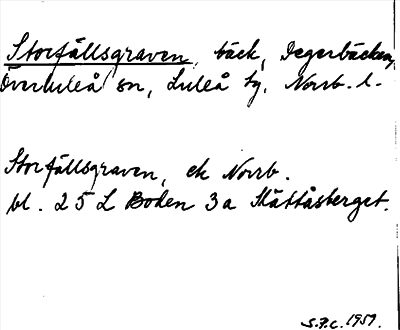 Storfällsgraven, bäck, Degerbäcken,
Överluleå sn, Luleå tg, Norrb. l.
Storfällsgraven, ek Norrb.
bl. 25 L Boden 3a Slättåsberget.
S.F.C. 1959.